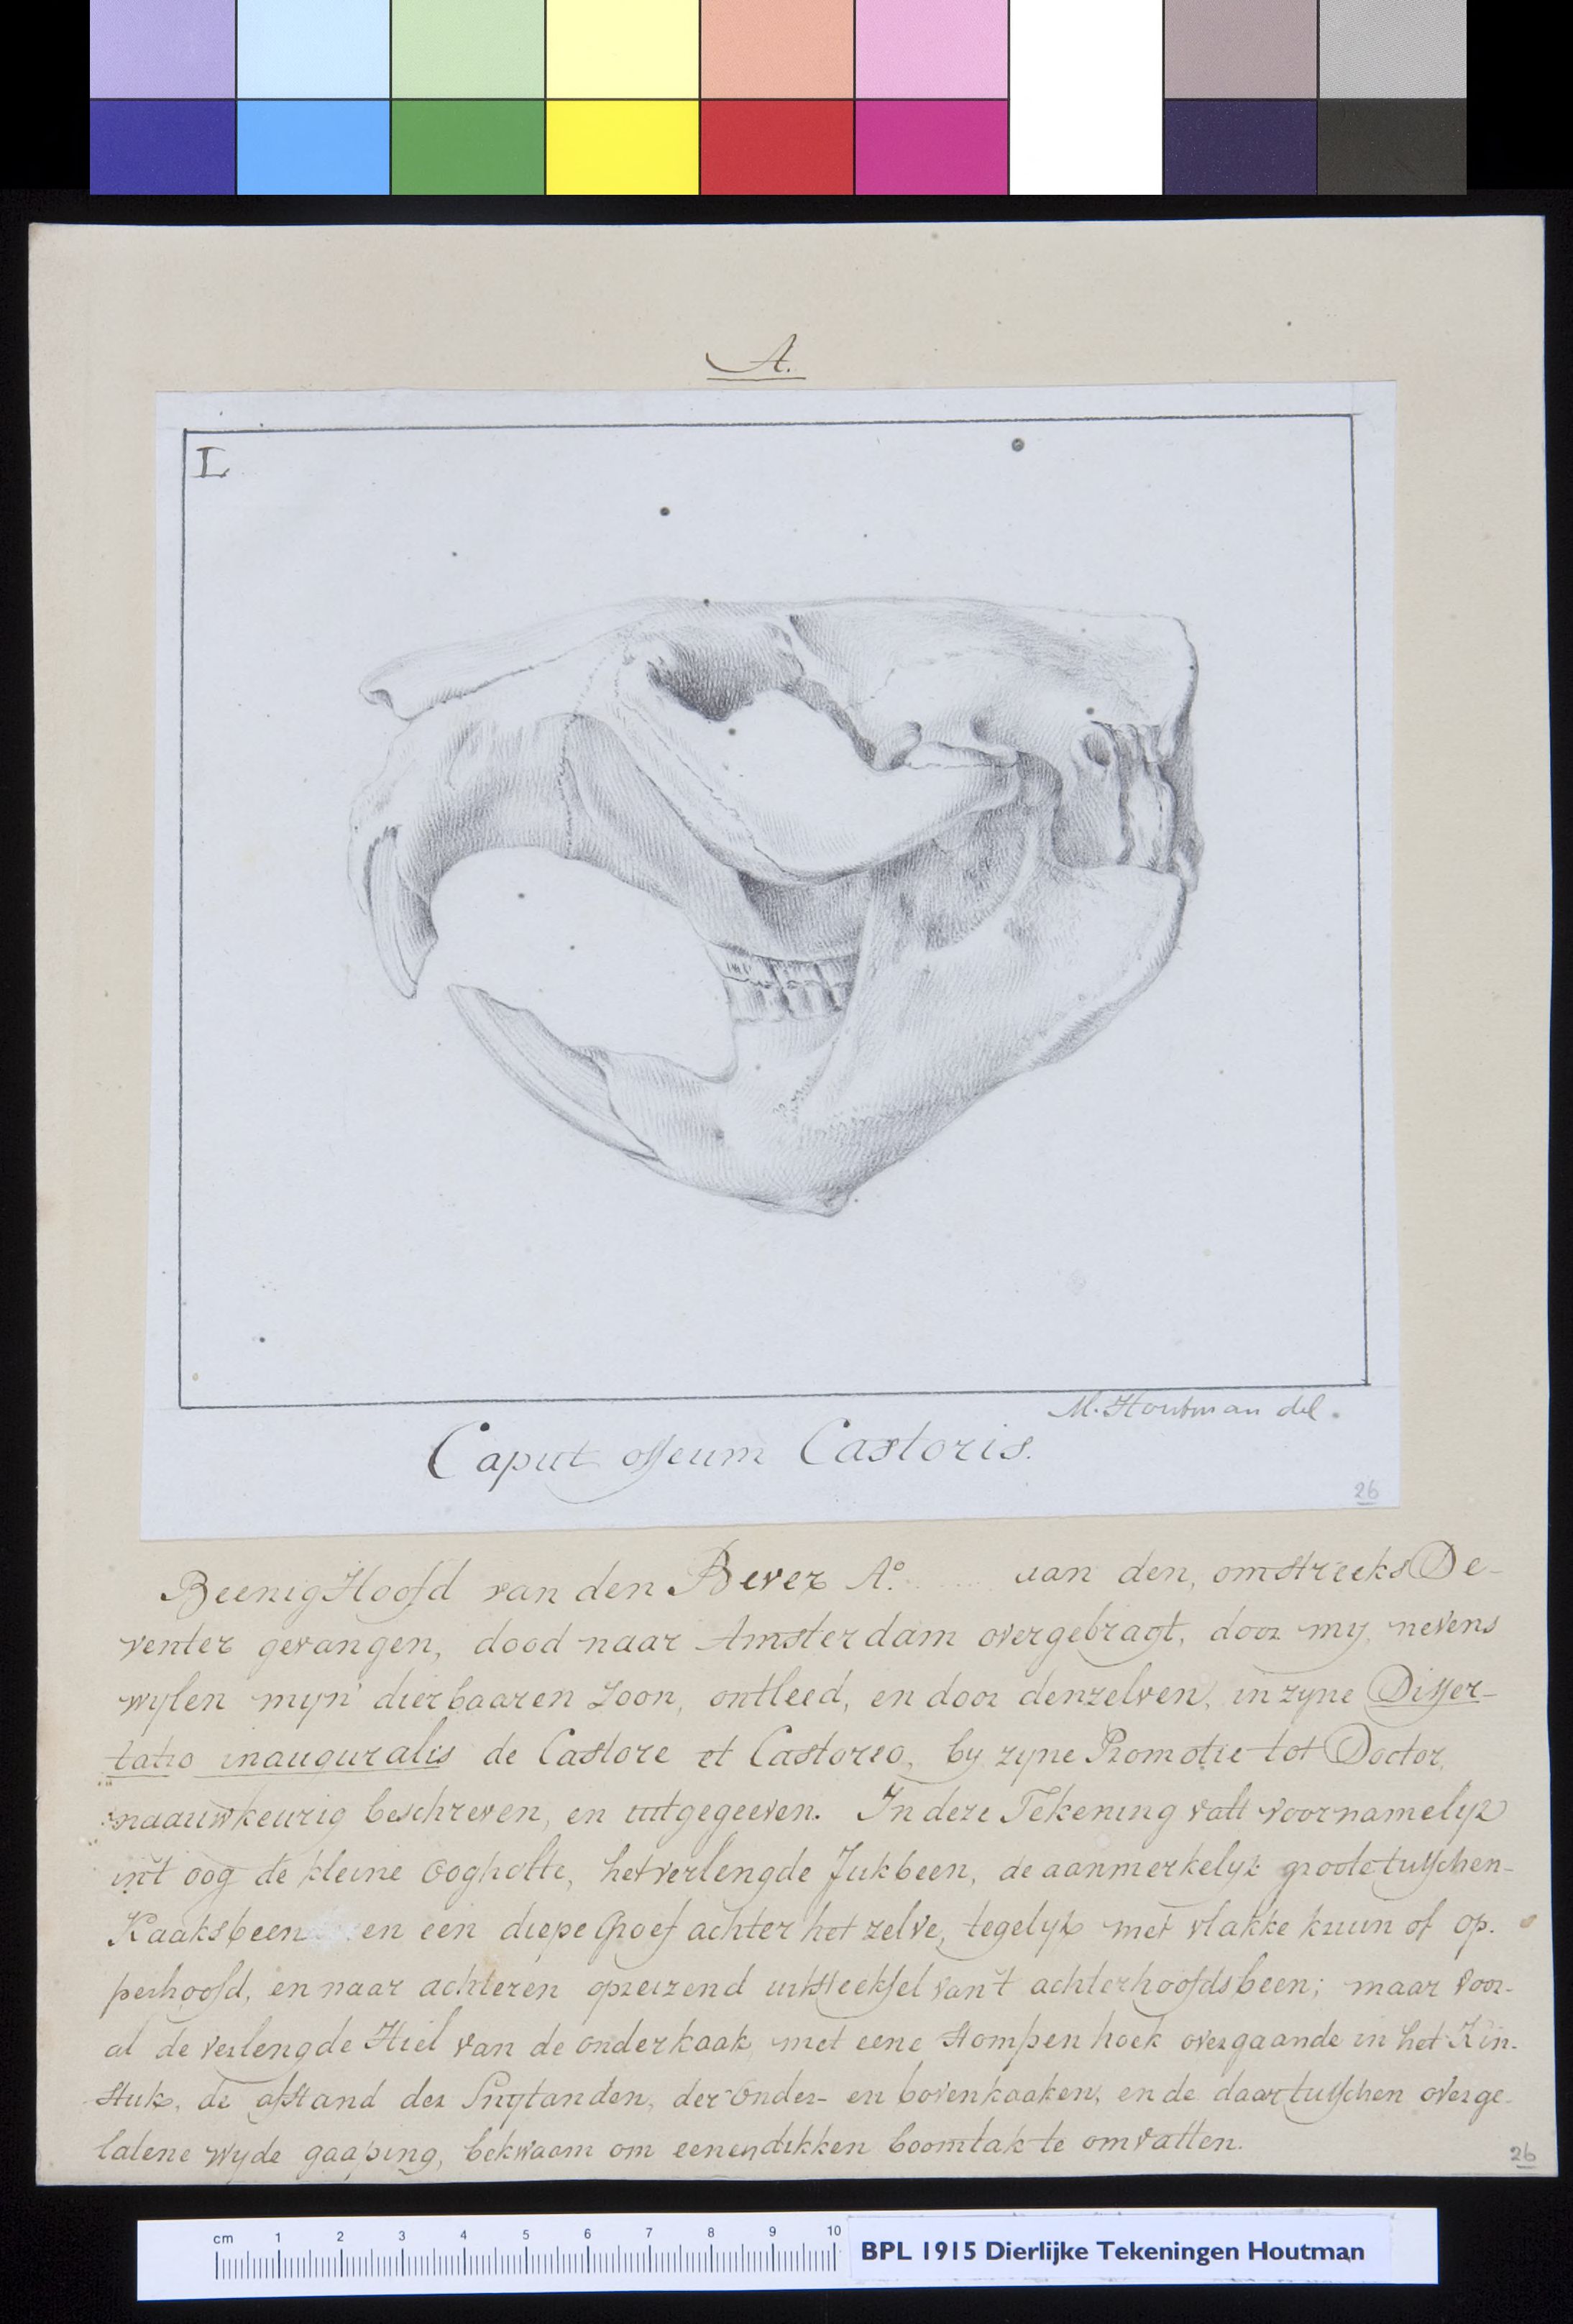 A.
L
M. Houtman del.
Caput osseum Castoris.
26
Beenig Hoofd van den Bever A.° ...... van den, omstreeks De-
venter gevangen, dood naar Amsterdam overgebragt, door my, nevens
wylen myn' dierbaaren Zoon, ontleed, en door denzelven, in zyne Disser-
tatio inauguralis de Castore et Castoreo, by zyne Promotie tot Doctor,
naauwkeurig beschreven, en uitgegeeven. In deze Tekening valt voornamelyk
in't oog de kleine Oogholte, het verlengde Jukbeen, de aanmerkelyk groote tusschen-
Kaaksbeen en een diepe Groef achter het zelve, tegelyk met vlakke kruin of op-
perhoofd, en naar achteren opreizend uitsteeksel van't achterhoofdsbeen; maar voor-
al de verlengde Hiel van de onderkaak, met eene stompen hoek overgaande in het Kin-
stuk, de afstand der Snytanden, der Onder- en bovenkaaken, en de daartusschen overge-
latene wyde gaaping, bekwaam om eenen dikken boomtak te omvatten.
26
cm 1 2 3 4 5 6 7 8 9 10
BPL 1915 Dierlijke Tekeningen Houtman